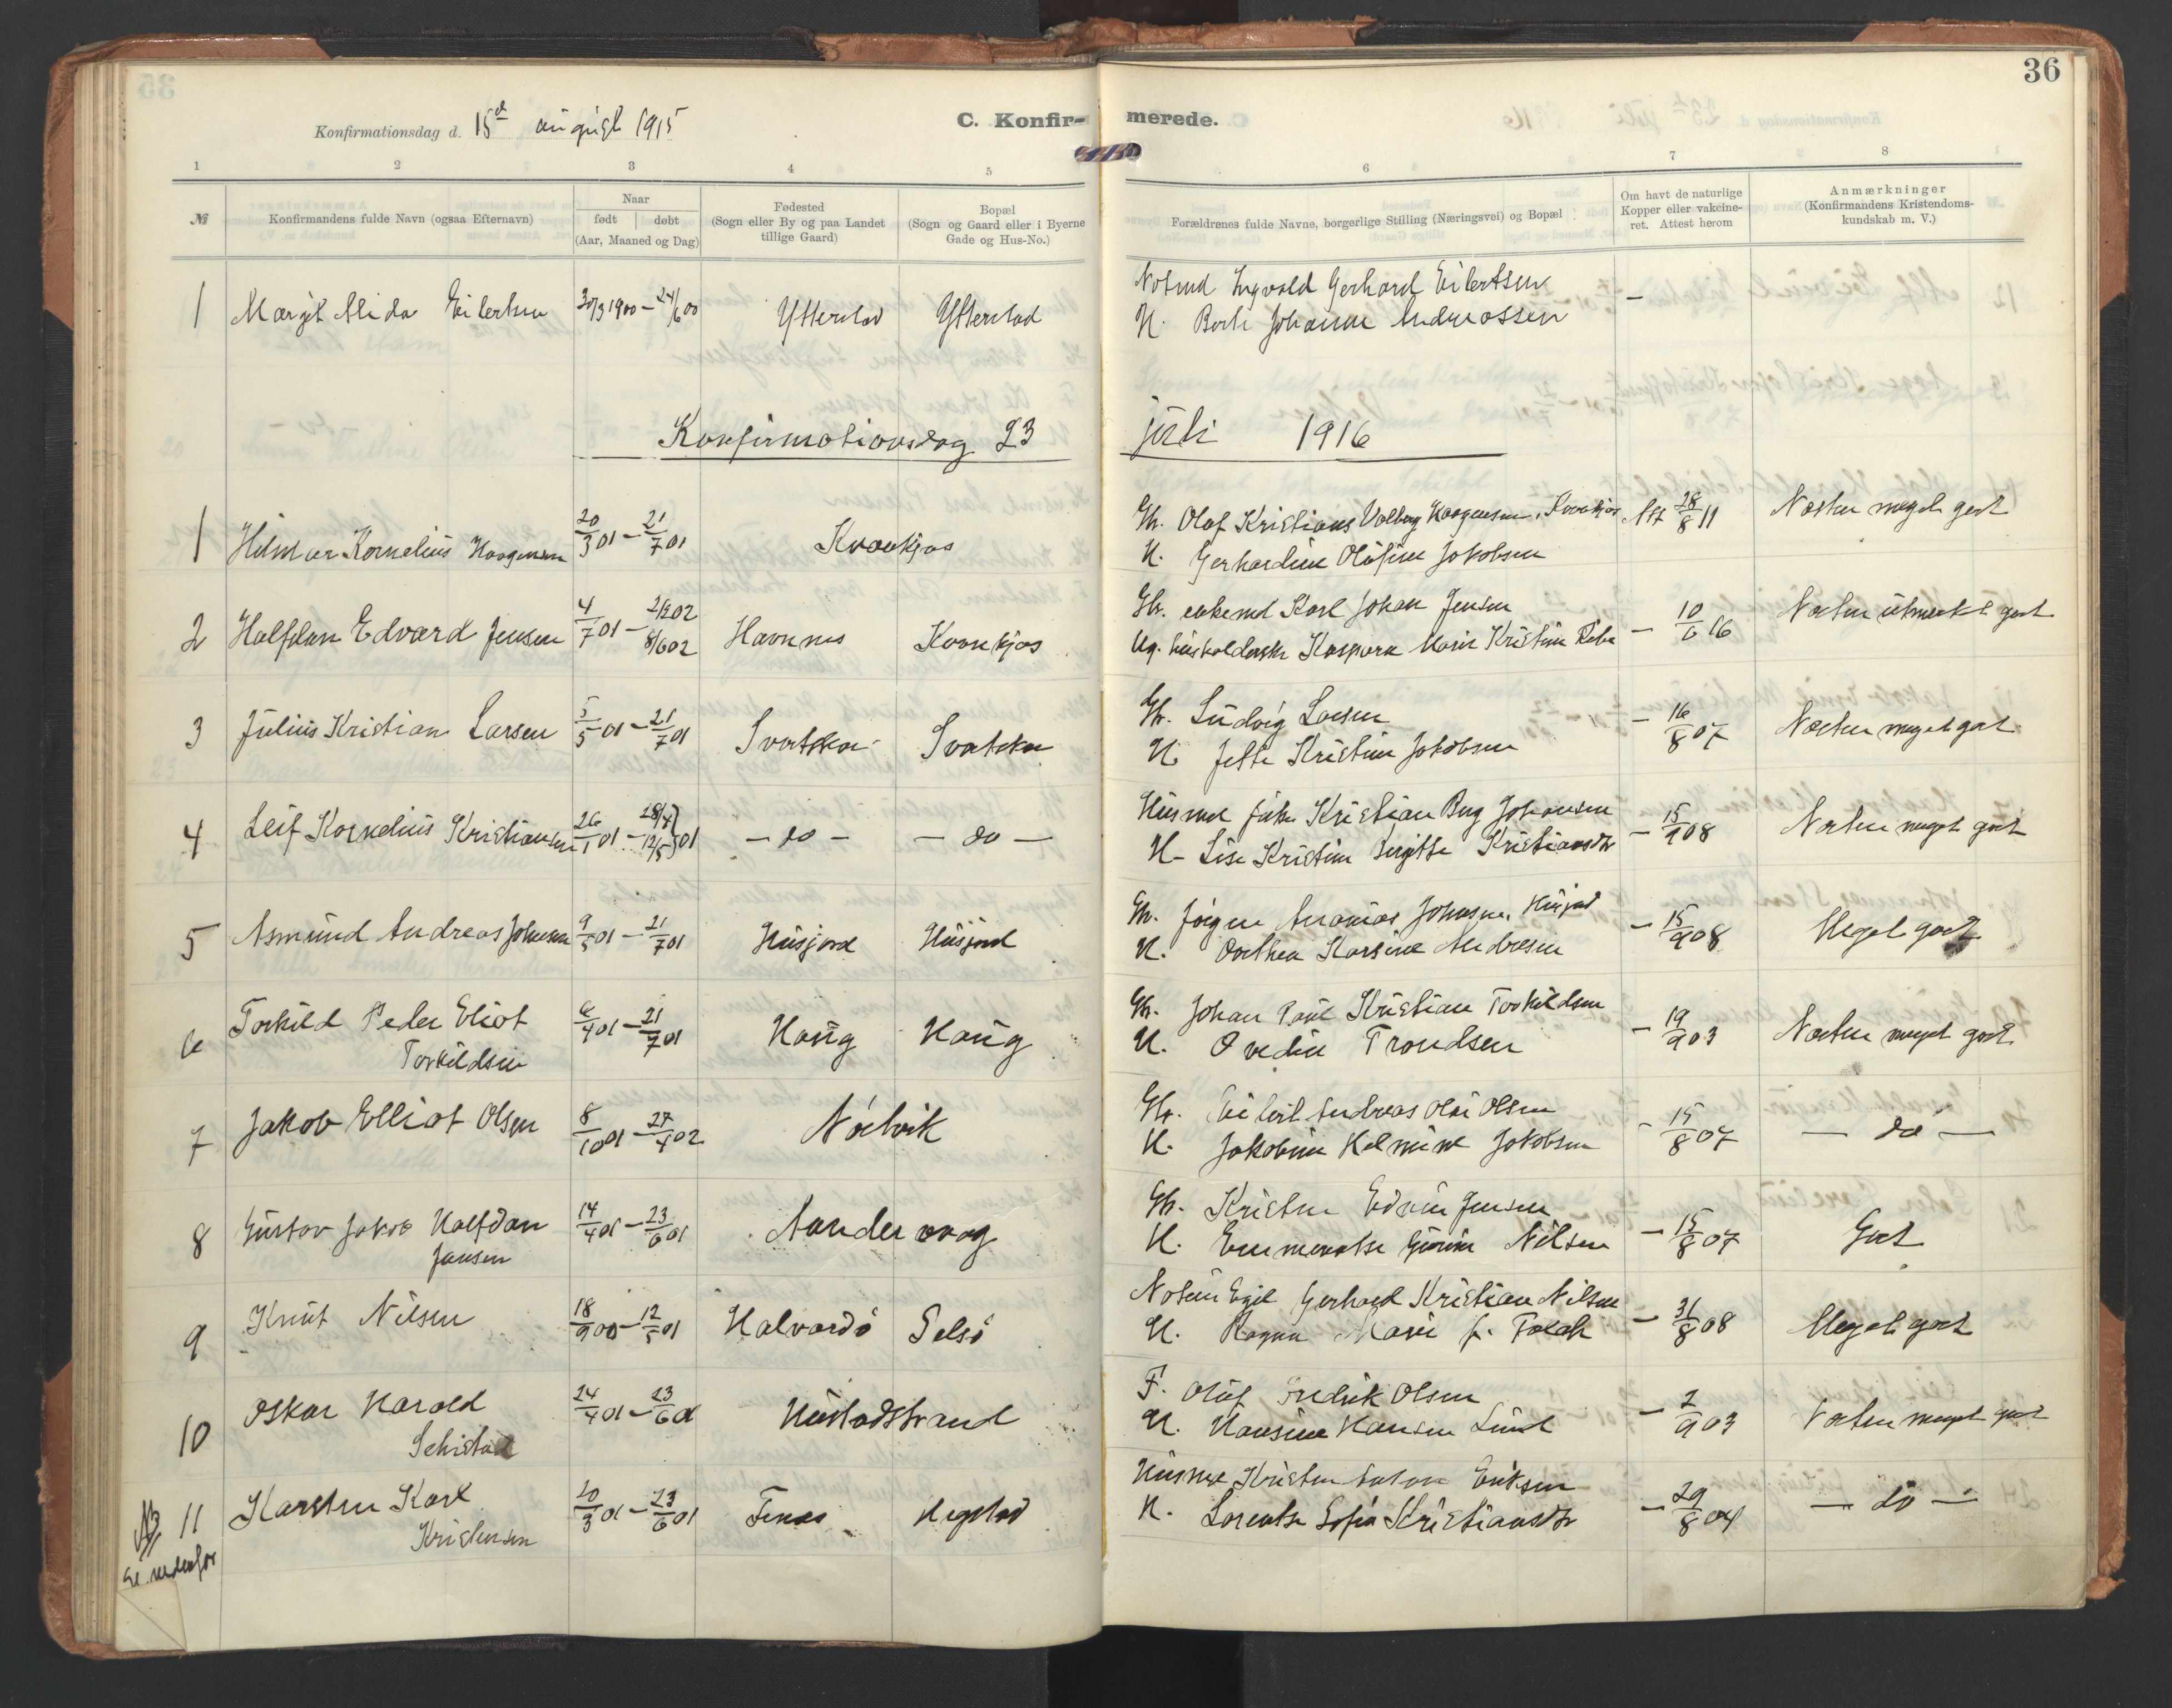 36
Konfirmationsdag d. 15d august 1915
C. Konfir- merede.
1 2 3 4 5 6 7 8
№
Konfirmandens fulde Navn (ogsaa Efternavn)
Naar
født døbt
(Aar, Maaned og Dag)
Fødested
(Sogn eller By og paa Landet
tillige Gaard)
Bopæl
(Sogn og Gaard eller i Byerne
Gade og Hus-No.)
Forældrenes fulde Navne, borgerlige Stilling (Næringsvei) og Bopæl
Om havt de naturlige
Kopper eller vakcine-
ret. Attest herom
Anmærkninger
(Konfirmandens Kristendoms-
kundskab m. V.)
1 Margit Alida Eilertsen 30/3 1900 – 24/6 00 Ytterstad Ytterstad
Notmd Ingvald Gerhard Eilertsen –
H. Berte Johanne Andreassen
Konfirmationsdag 23 juli 1916
1 Hilmar Kornelius Haagensen 20/3 01 – 21/7 01 Kvankjos
Gb. Olaf Kristians Valberg Haagensen, Kvankjos Att 28/8 11 Næsten meget godt
H. Gerhardine Olufine Jakobsen
2 Halfdan Edvard Jensen 4/7 01 – 2/2 02 8/6 02 Havnnes Kvankjos
Gb. enkemd Karl Johan Jensen – 10/6 16 Næsten utmerket godt
Ug. husholderske Kaspara Marie Kristine
3 Julius Kristian Larsen 5/5 01 – 21/7 01
Gb. Ludvig Larsen – 16/8 07 Næsten meget godt
H. Jette Kristine Jakobsen
4 Leif Kornelius Kristiansen 26/1 01 – 28/4 12/5 01 – do – – do –
Husmd Kristian Berg Johansen – 15/9 08 Næsten meget godt
H – Lise Kristine Birgitte Kristiansdtr
5 Asmund Andreas Johnsen 9/5 01 – 21/7 01 Husjord Husjord
Gb. Jørgen Ananias Johnsen, Husjord – 15/9 08 Meget godt
H. Dorthea Karsine Andresen
6 Torkild Peder Eliot 6/4 01 – 21/7 01 Haug Haug
Torkildsen
Gb. Johan Paul Kristian Torkildsen – 19/9 03 Næsten meget godt
H. Ovedie Trondsen
7 Jakob Elliot Olsen 8/10 01 – 27/4 02
Gb. Eilert Andreas Olai Olsen – 15/8 07 – do –
H. Jakobine Helmine Jakobsen
8 Gustav Jakob Halfdan 14/4 01 – 23/6 01 Sandervaag
Jensen
Gb. Kristen Edvin Jensen – 15/8 07 Godt
H. Emmerentse Nilsen
9 Knut Nilsen 18/9 00 – 12/5 01 Halvardø Selsø
Gerhard Kristian Nilsen – 31/8 08 Meget godt
H. Ragna Marie f. Falch
10 Oskar Harald 24/4 01 – 23/6 01 Hustadstrand
Schistad
F. Oluf Fredrik Olsen – 2/9 03 Næsten meget godt
H. Hansine Hansen Lind
NB 11 Karsten Karl 20/3 01 – 23/6 01 Finnes Hegstad
se nedenfor Kristensen
Husmd Kristen Anton Eriksen – 29/8 04 – do –
H. Lorentse Sofie Kristiansdtr